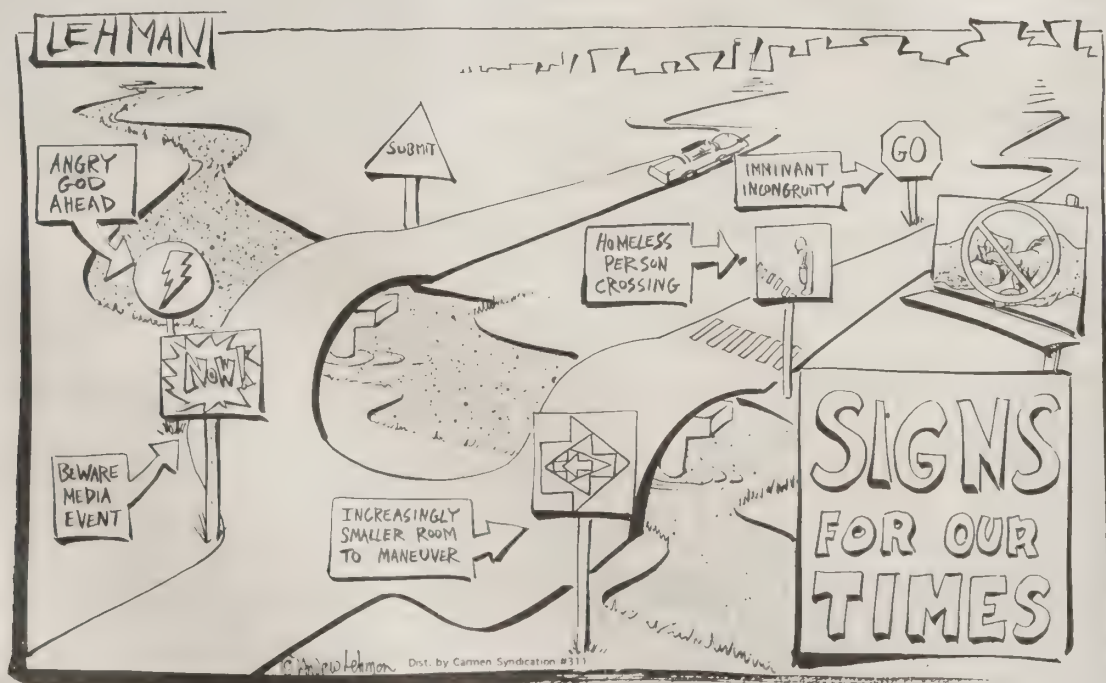 LEHMAN
ANGRY
GOD
AHEAD
SUBMIT
IMMINANT
INCONGRUITY
GO
HOMELESS
PERSON
CROSSING
NOW!
BEWARE
MEDIA
EVENT
INCREASINGLY
SMALLER ROOM
TO MANEUVER
SIGNS
FOR OUR
TIMES
© Andrew Lehman Dist. by Carmen Syndication #311